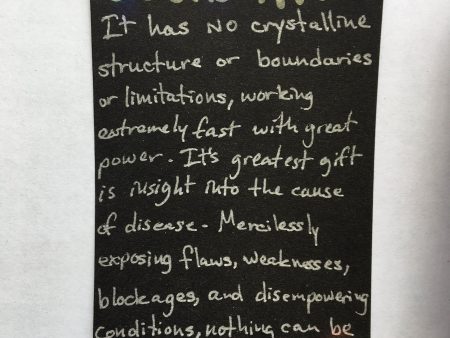 It has NO crystalline
structure or boundaries
or limitations, working
extremely fast with great
power. It's greatest gift
is insight into the cause
of disease. Mercilessly
exposing flaws, weaknesses,
blockages, and disempowering
conditions, nothing can be